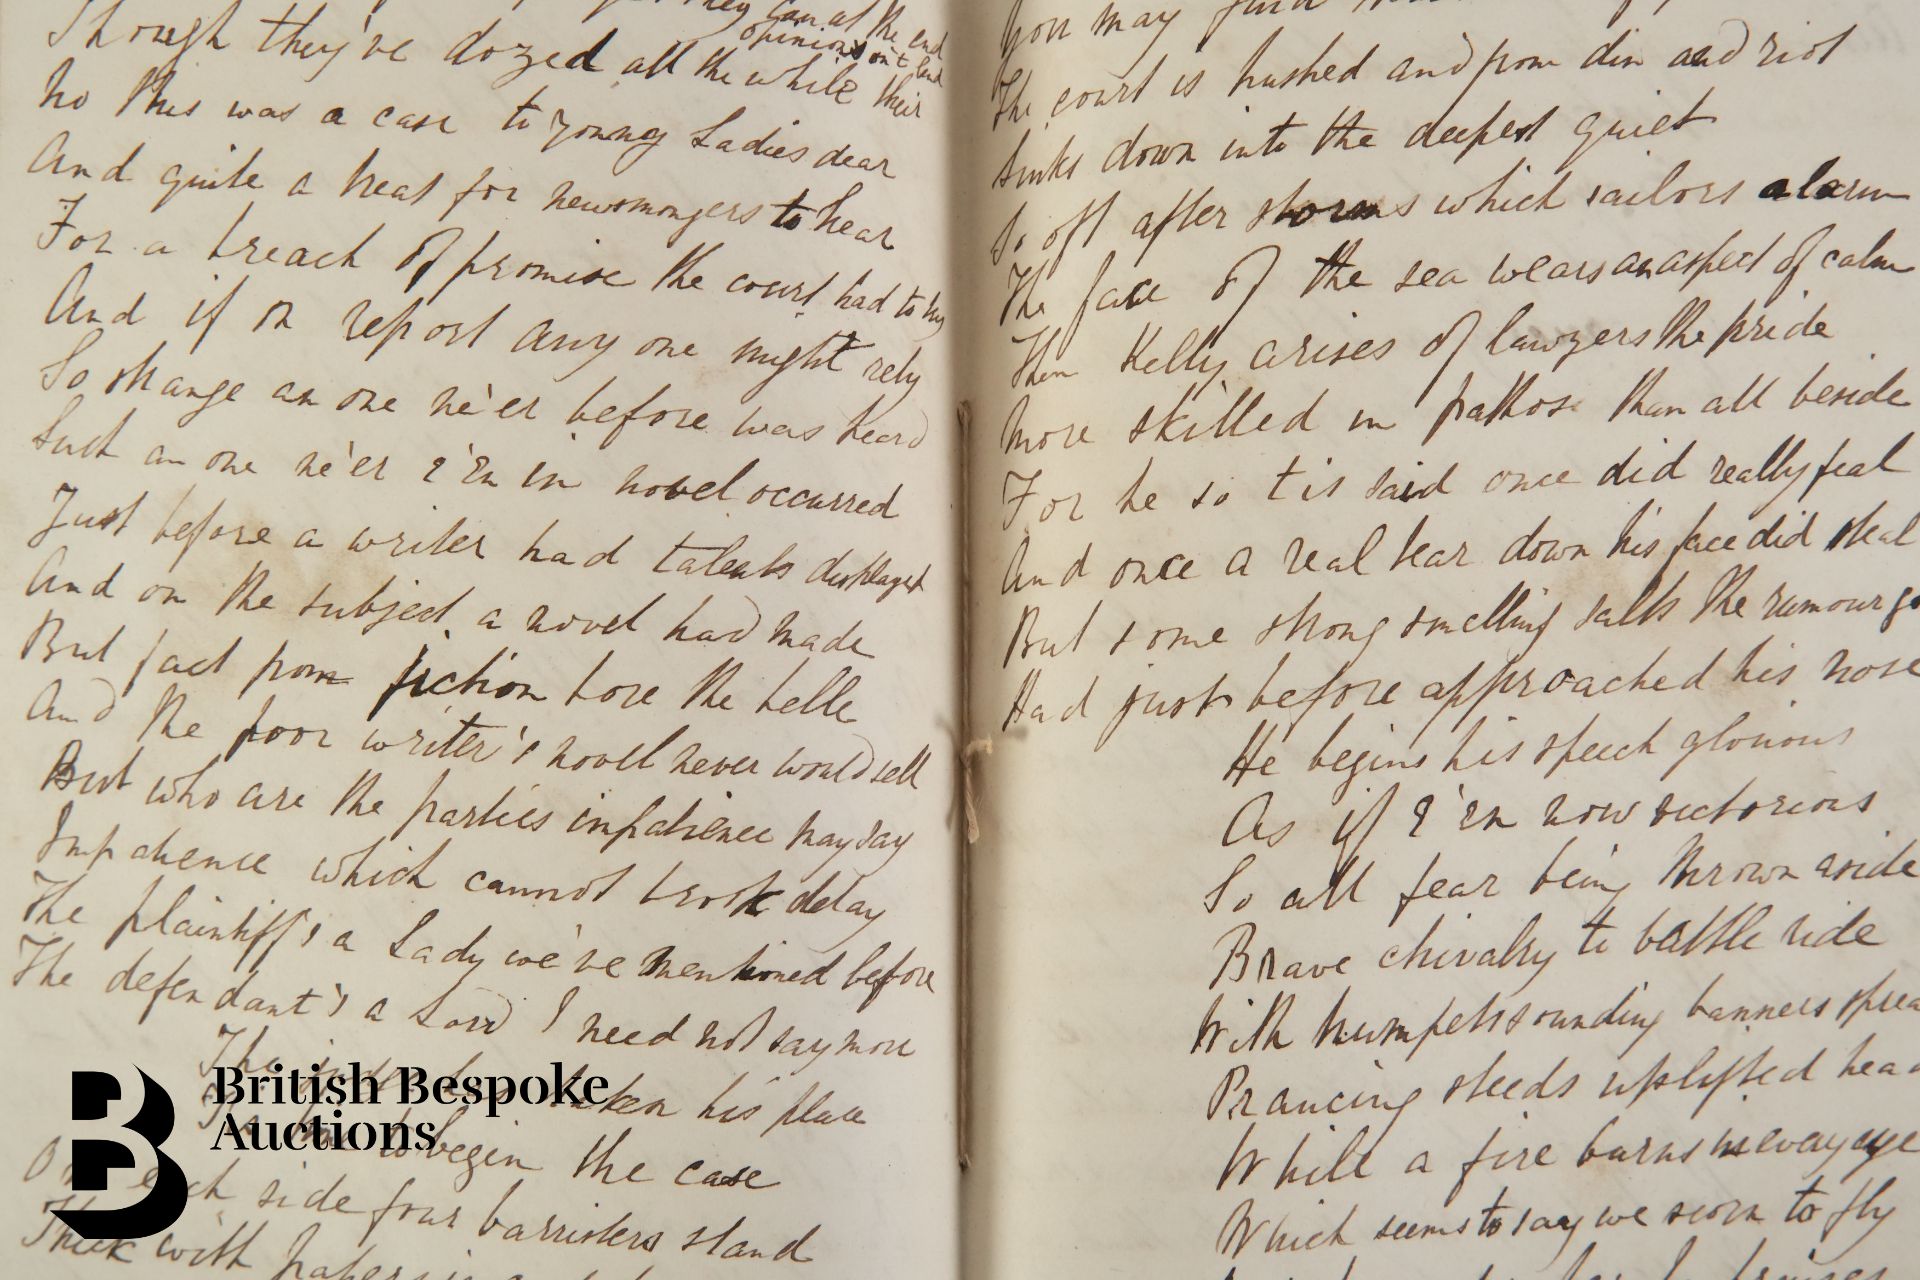 they can at the end
opinions on't lend
Though they've dozed all the while their
No this was a case to young Ladies dear
And quite a treat for newsmongers to hear
For a breach of promise the court had to try
And if on report any one might rely
So strange an one ne'er before was heard
Such an one ne'er e'en in novel occurred
Just before a writer had talents displayed
And on the subject a novel had made
But fact from fiction bore the belle
And the poor writer's novel never would sell
But who are the parties impatience may say
Impatience which cannot brook delay
The plaintiff's a Lady we've mentioned before
The defendant's a Lord I need not say more
The taken his place
to begin the case
On each side four barristers stand
Thick with papers in
You may find
The court is hushed and from din and riot
Sinks down into the deepest quiet
So oft after storms which sailors alarm
The face of the sea wears an aspect of calm
Then Kelly arises of lawyers the pride
More skilled in pathos than all beside
For he so t is said once did really feal
And once a real tear down his face did steal
But some strong smelling salts the rumour go
Had just before approached his nose
He begins his speech glorious
As if e'en now victorious
So all fear being thrown aside
Brave chivalry to battle ride
With trumpets sounding banners sprea
Prancing steeds uplifted head
While a fire burns in every eye
Which seems to say we scorn to fly
British Bespoke
Auctions